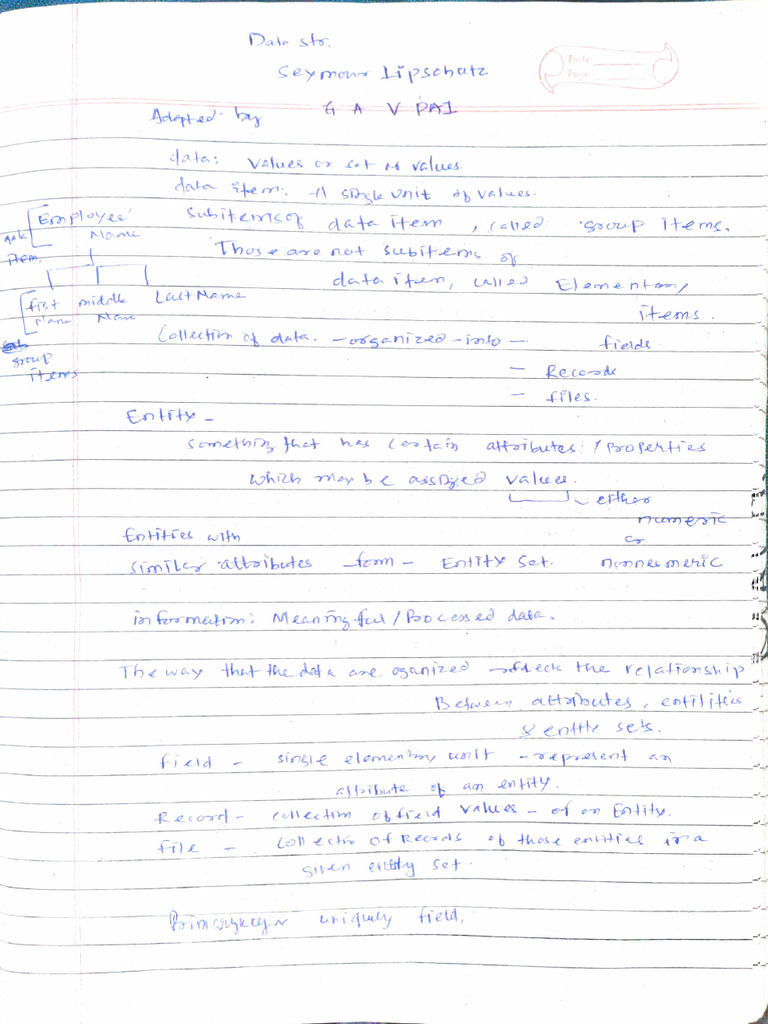 Data str.
Seymour Lipschutz
Date
Page
Adopted by G A V PAI
data: values or set of values.
data item: A single unit of values.
subitems of data item, called group items.
Employee Name
data item.
Those are not subitems of
data item, called Elementary
items.
first Name middle Name Last Name
group items
Collection of data - organized - into - fields
- Records
- files.
Entity -
something that has certain attributes / properties
which may be assigned values.
either
numeric
or
nonnumeric
Entities with
similar attributes - form - Entity set.
information: Meaningful / Processed data.
The way that the data are oganized reflect the relationship
Between attributes, entilities
& entity sets.
field - single elementary unit - represent an
attribute of an entity.
Record - collection of field values - of an Entity.
file - collectio of Records of those entities in a
given entity set.
Primarykey uniquely field.